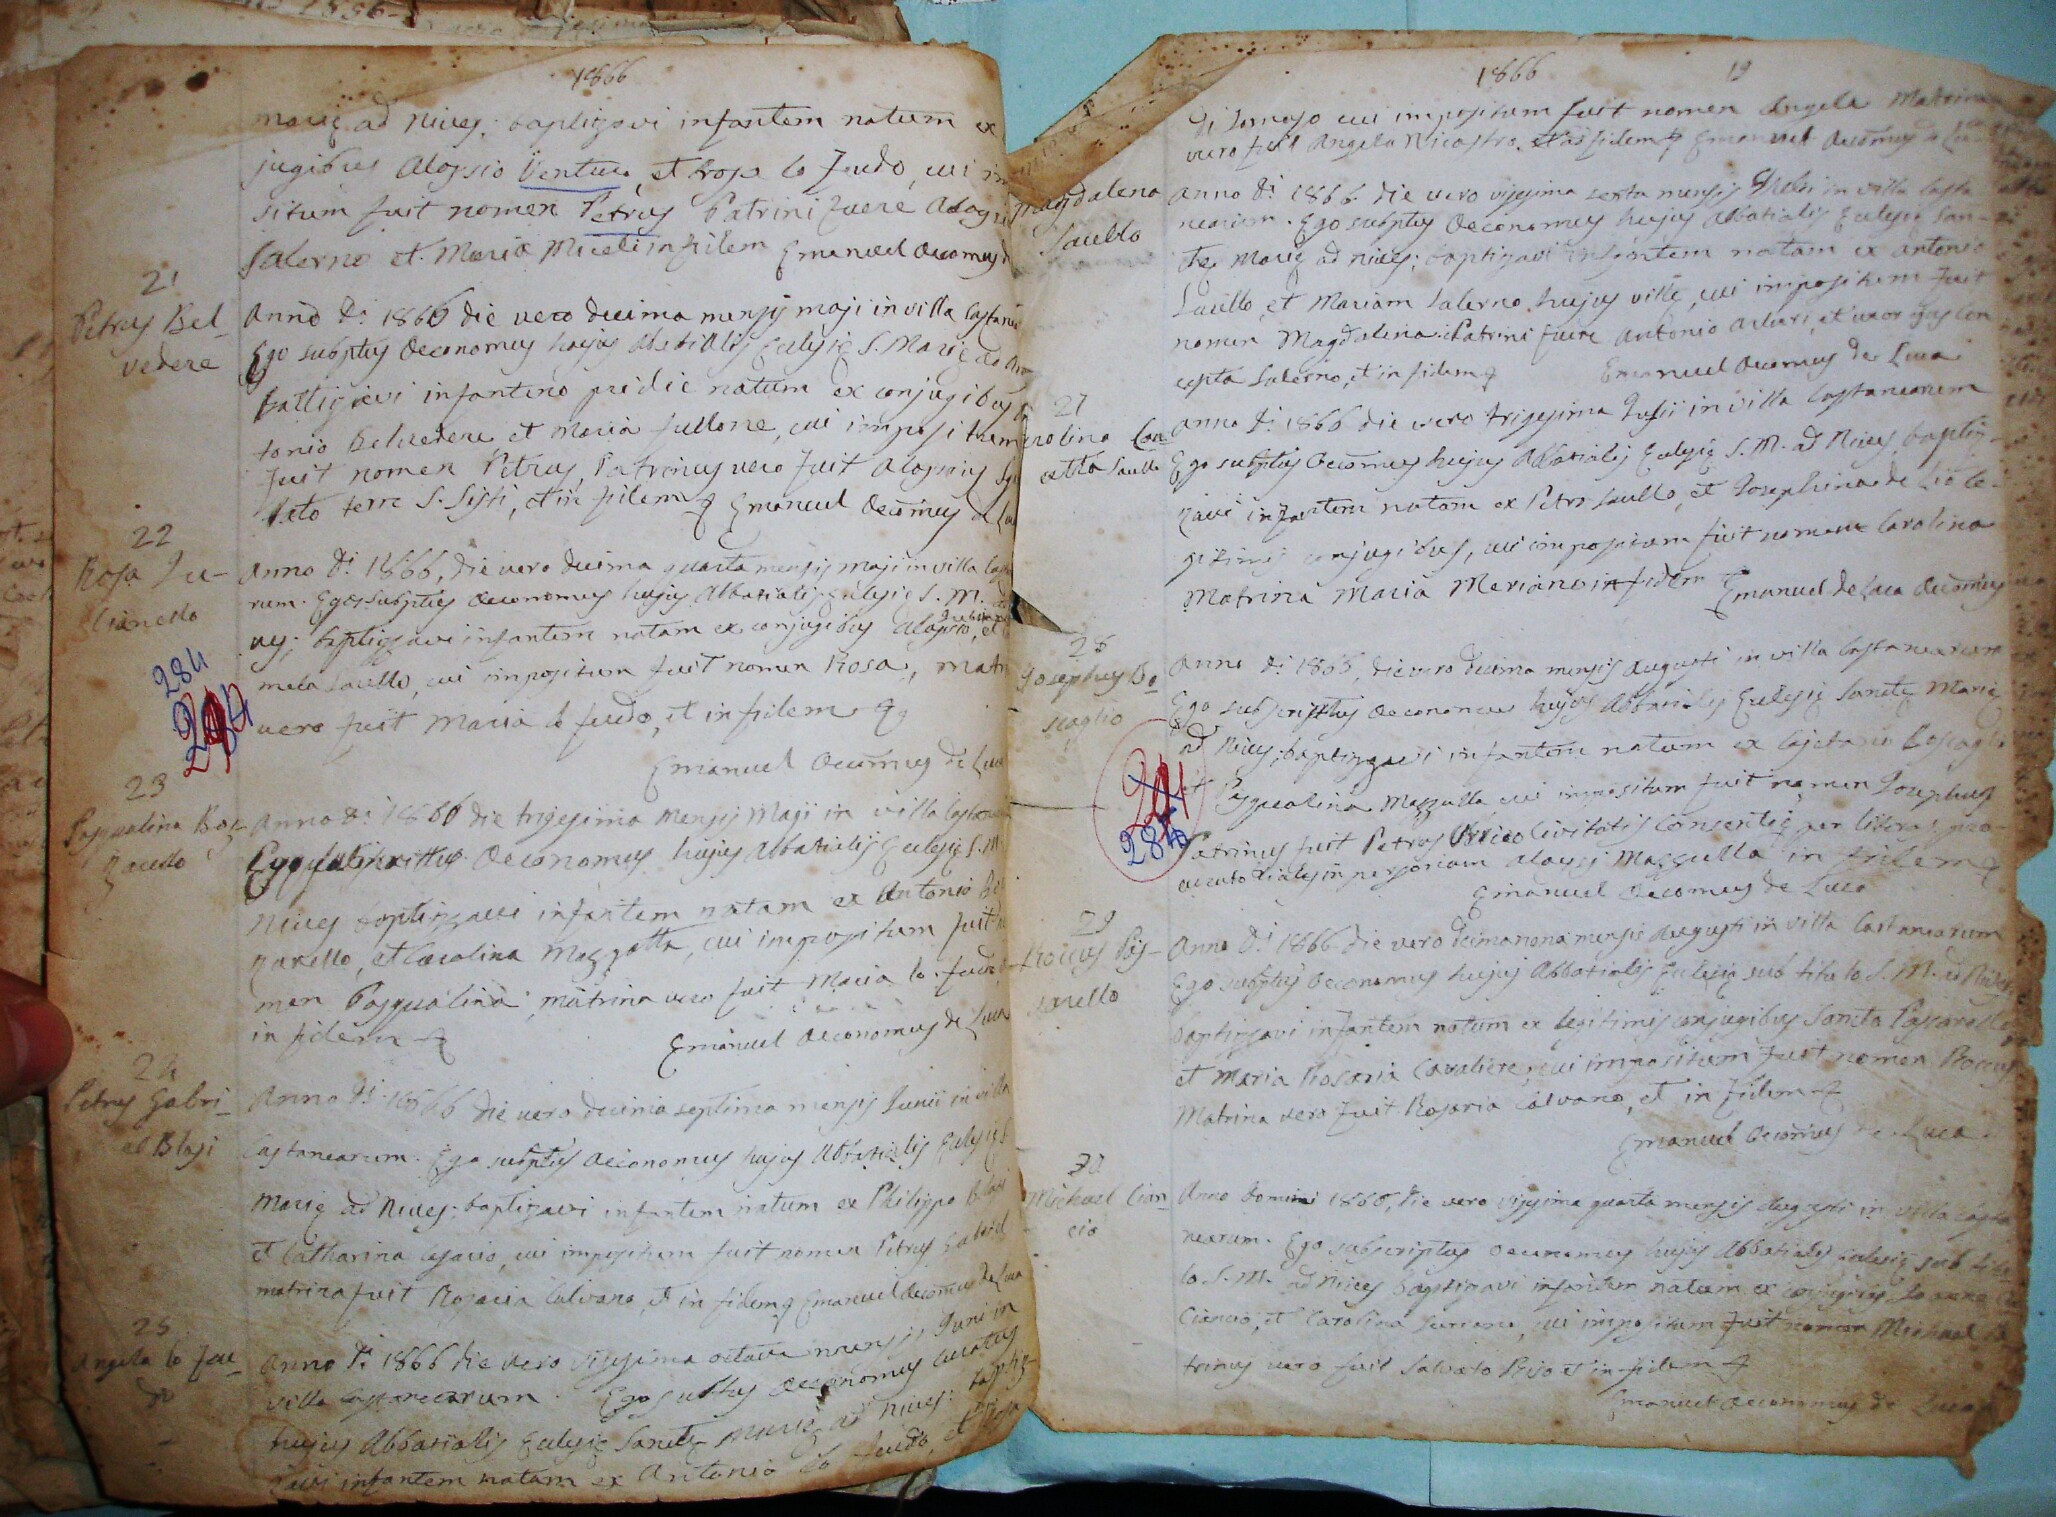 1866
mariç ad Nives; baptizavi infantem natum ex
jugibus Aloysio Ventura, et Rosa lo Feudo, cui im
situm fuit nomen Petrus Patrini fuere Aloysi
Salerno et Maria Miceli in fidem Emanuel Oeconomus
21
Petrus Bel-
vedere
Anno Di 1866 die vero decima mensis maji in villa Castane
Ego subptus Oeconomus hujus Abbatialis Eclesiç S. Mariç ad
battizavi infantino pridie natum ex conjugibus
tonio Belvedere et Maria fullone, cui impositum
fuit nomen Petrus, Patrinus vero fuit Aloysius
terre S. Sisti, et in fidem Emanuel Oecomus de Luc
22
Rosa Iu-
lianello
Anno Di 1866, die vero decima quarta mensis maji in villa Casta
rum. Ego subptus Oeconomus hujus Abbatialis Eclesiç S. M.
baptizzavi infantem natam ex conjugibus Aloysio, et
mela Saullo, cui impositum fuit nomen Rosa, matri
vero fuit Maria lo feudo, et in fidem
Emanuel Oecomus de Luca
284
284
23
Pasqualina Boz-
zarello
Anno Di 1866 die trigesima mensis Maji in villa Castanea
Ego subscrittus Oeconomus hujus Abbatialis Eclesiç S. M.
Nives baptizzavi infantem natam ex Antonio Bo
zarello, et Carolina Mazzotta, cui impositum fuit
men Pasqualina, matrina vero fuit Maria lo feudo,
in fidem
Emanuel Oeconomus de Luca
24
Petrus Gabri-
el Blasi
Anno Di 1866 die vero decima septima mensis Iunii in villa
Castanearum. Ego subptus Oeconomus hujus Abbatialis Eclesiç S.
Mariç ad Nives; baptizavi infantem natum ex Philippo Blasi
et Catharina Cesario, cui impositum fuit nomen Petrus Gabriel
matrina fuit Rosaria Calvano, et in fidem Emanuel Oecomus de Luca
25
Angela lo Feu-
do
Anno Di 1866 die vero vigesima octava mensis Iuni in
villa Castanearum. Ego subptus Oeconomus curatus
hujus Abbatialis Eclesiç Sanctç Mariç ad Nives: baptiz
zavi infantem natam ex Antonio lo feudo, et Rosa
1866
19
cui impositum fuit nomen Angela Matrina
vero fuit Angela Nicastro, et in fidem Emanuel Oecomus de Lu
Magdalena
Saullo
Anno Di 1866 die vero vigesima sexta mensis in villa Casta
nearum. Ego subptus Oeconomus hujus Abbatialis Eclesiç San-
ctç Mariç ad Nives; baptizavi infantem natam ex Antonio
Saullo, et Mariam Salerno hujus villç, cui impositum fuit
nomen Magdalena. Patrini fuere Antonio et uxor ejus Con
cepta Salerno, et in fidem Emanuel Oecomus de Luca
27
rolina Con-
cetta Saullo
Anno Di 1866 die vero trigesima Iulii in villa Castanearum
Ego subptus Oecomus hujus Abbatialis Eclesiç S. M. ad Nives baptiz-
zavi infantem natam ex Petro Saullo, et Iosephina de Lio le-
gitimis conjugibus, cui impositum fuit nomen Carolina
Matrina Maria Meriano in fidem Emanuel de Luca Oecomus
28
Iosephus Bo-
scaglio
Anno Di 1866, die vero decima mensis Augusti in villa Castanearum
Ego subscriptus Oeconomus hujus Abbatialis Eclesiç Sanctç Mariç
ad Nives; baptizzavi infantem natum ex Cajetano Boscaglio
et Pasqualina Mazzulla cui impositum fuit nomen Iosephus
Patrinus fuit Petrus Civitatis Consentiç per literas pro-
curatoriales in personam Aloysi Mazzulla in fidem
Emanuel Oecomus de Luca
284
29
Roccus Pas-
sarello
Anno Di 1866 die vero decimanona mensis Augusti in villa Castanearum
Ego subptus Oeconomus hujus Abbatialis Eclesiç sub titulo S. M. ad Nives
baptizzavi infantem natum ex legitimis conjugibus Santo Passarello
et Maria Rosaria Cavaliere, cui impositum fuit nomen Roccus
Matrina vero fuit Rosaria Calvano, et in fidem
Emanuel Oecomus de Luca
30
Michael Cian-
cio
Anno Domini 1866, die vero vigesima quarta mensis Augusti in villa Casta
nearum. Ego subscriptus Oeconomus hujus Abbatialis Eclesiç sub titu-
lo S. M. ad Nives baptizavi infantem natum ex conjugibus
Ciancio, et Carolina Suriano, cui impositum fuit nomen Michael Pa
trinus vero fuit Salvato Riso et in fidem
Emanuel Oeconomus de Luca